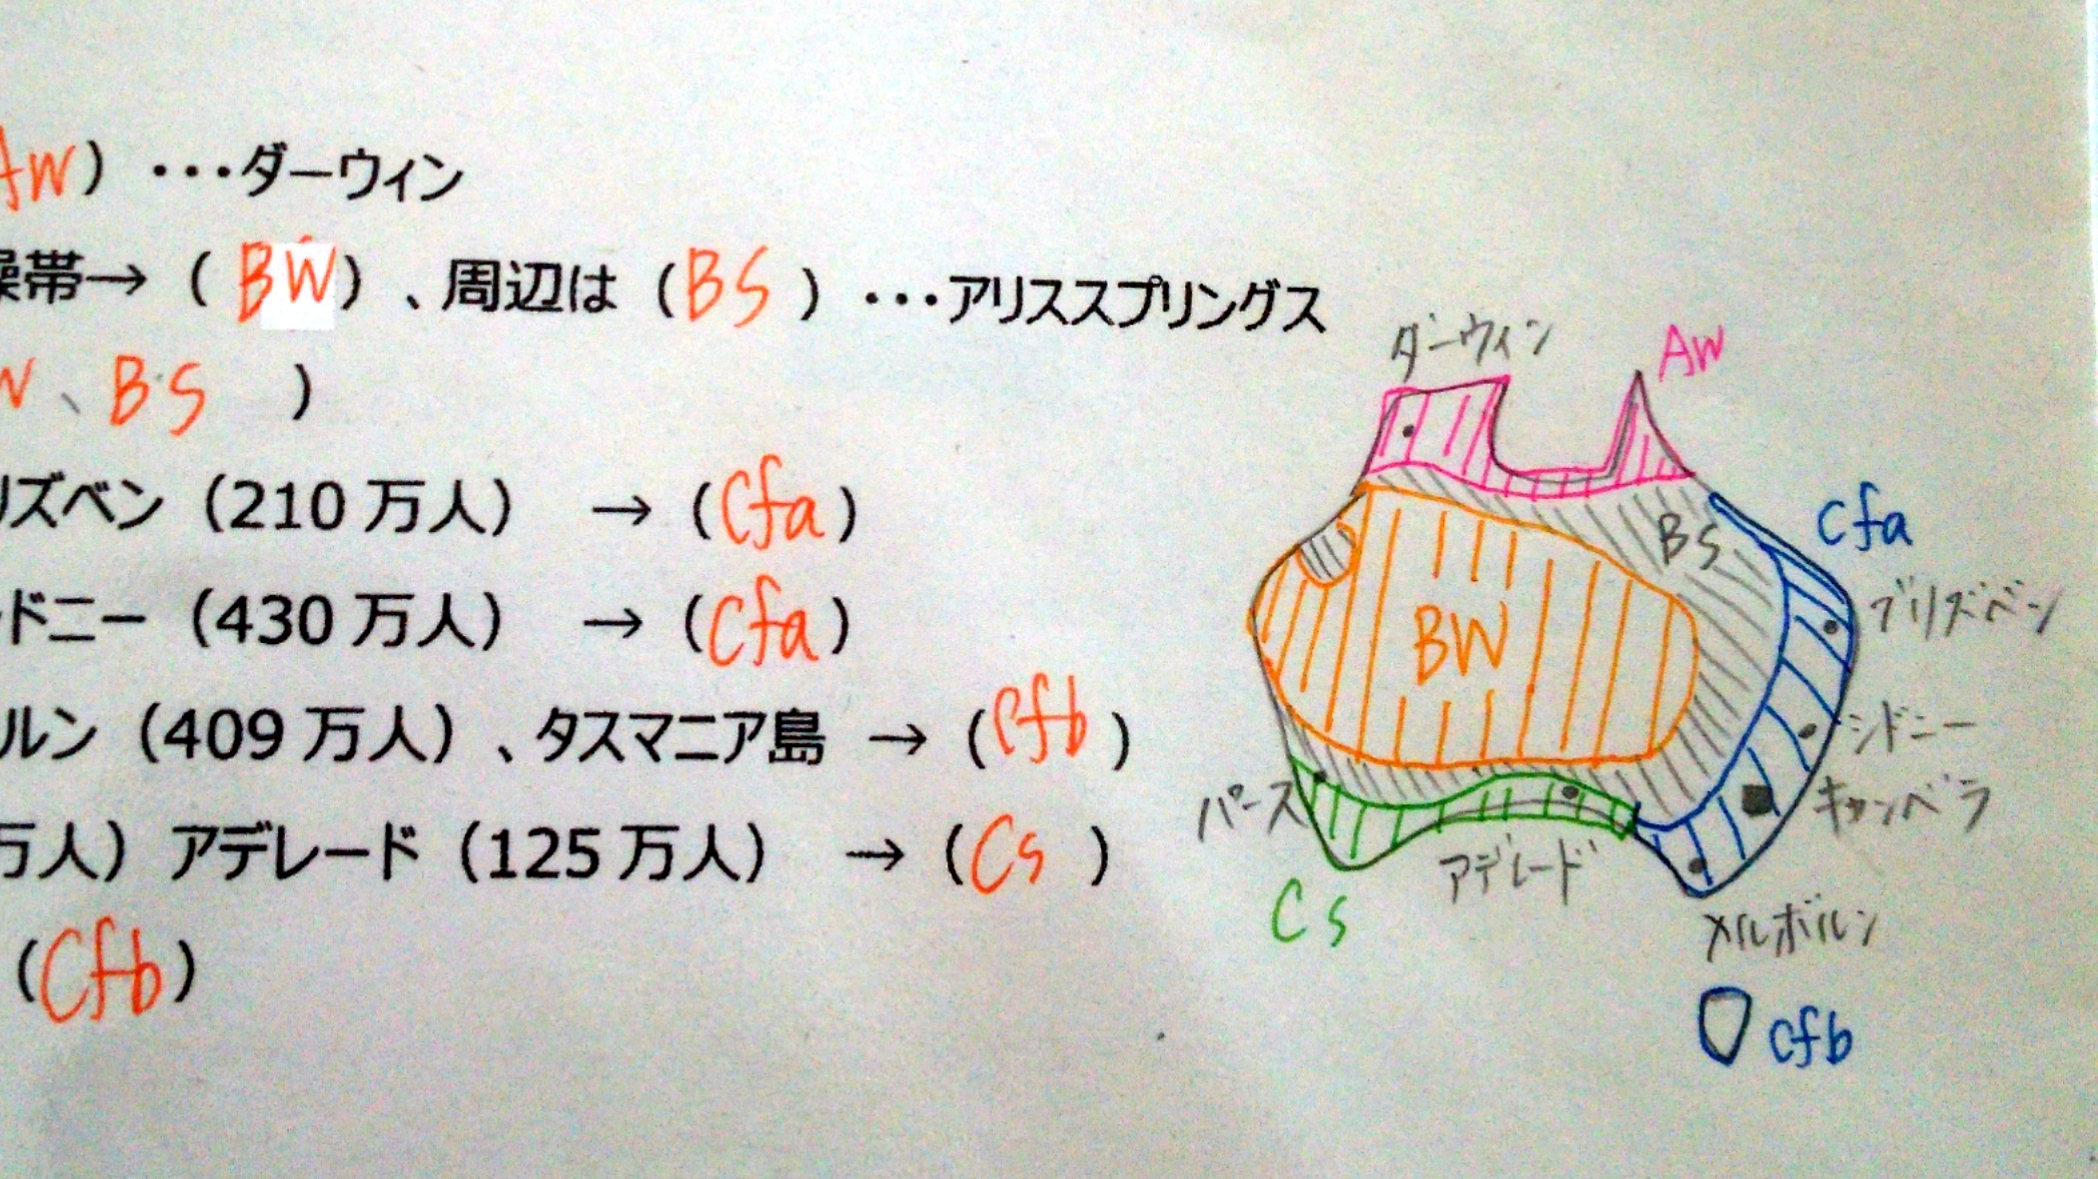 Aw）・・・ダーウィン
燥帯→（BW）、周辺は（BS）・・・アリススプリングス
W、BS）
リズベン（210万人）　→（Cfa）
ドニー（430万人）　→（Cfa）
ルン（409万人）、タスマニア島　→（Cfb）
万人）アデレード（125万人）　→（Cs）
（Cfb）
ダーウィン
Aw
BS
Cfa
BW
ブリズベン
シドニー
パース
キャンベラ
アデレード
Cs
メルボルン
Cfb